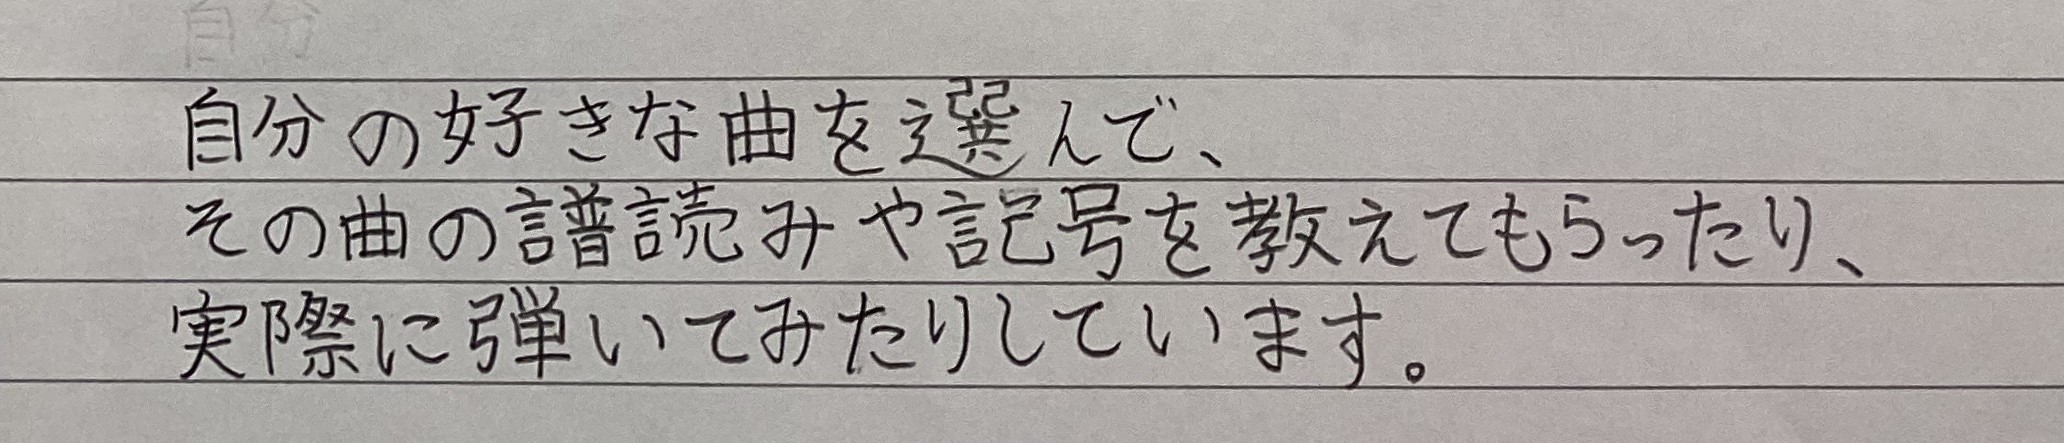 自分の好きな曲を選んで、
その曲の譜読みや記号を教えてもらったり、
実際に弾いてみたりしています。